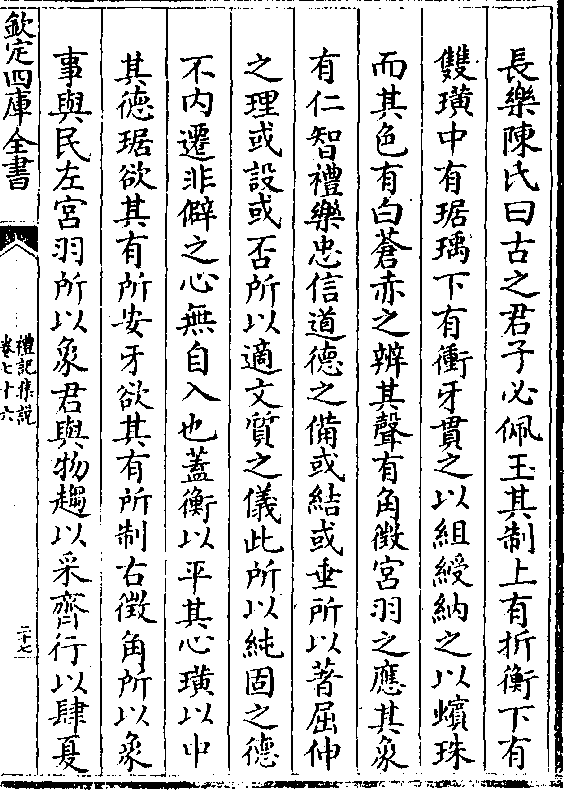 長樂陳氏曰古之君子必佩玉其制上有折衡下有
雙璜中有琚瑀下有衝牙貫之以組綬納之以蠙珠
而其色有白蒼赤之辨其聲有角徵宮羽之應其象
有仁智禮樂忠信道德之備或結或垂所以著屈伸
之理或設或否所以適文質之儀此所以純固之德
不内遷非僻之心無自入也蓋衡以平其心璜以中
其德琚欲其有所安牙欲其有所制右徵角所以象
事與民左宮羽所以象君與物趨以采齊行以肆夏
欽定四庫全書
禮記集說
卷七十六
二十七